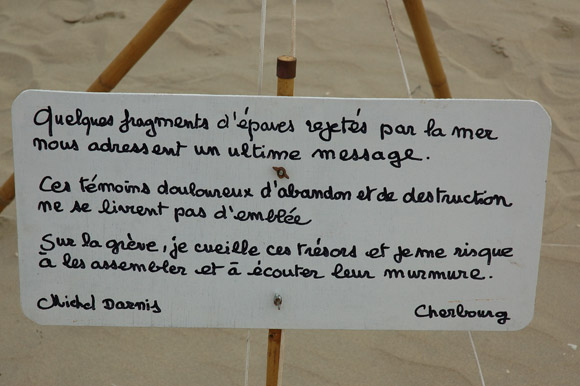 Quelques fragments d'épaves rejetés par la mer
nous adressent un ultime message.
Ces témoins douloureux d'abandon et de destruction
ne se livrent pas d'emblée
Sur la grève, je cueille ces trésors et je me risque
à les assembler et à écouter leur murmure.
Michel Darnis
Cherbourg